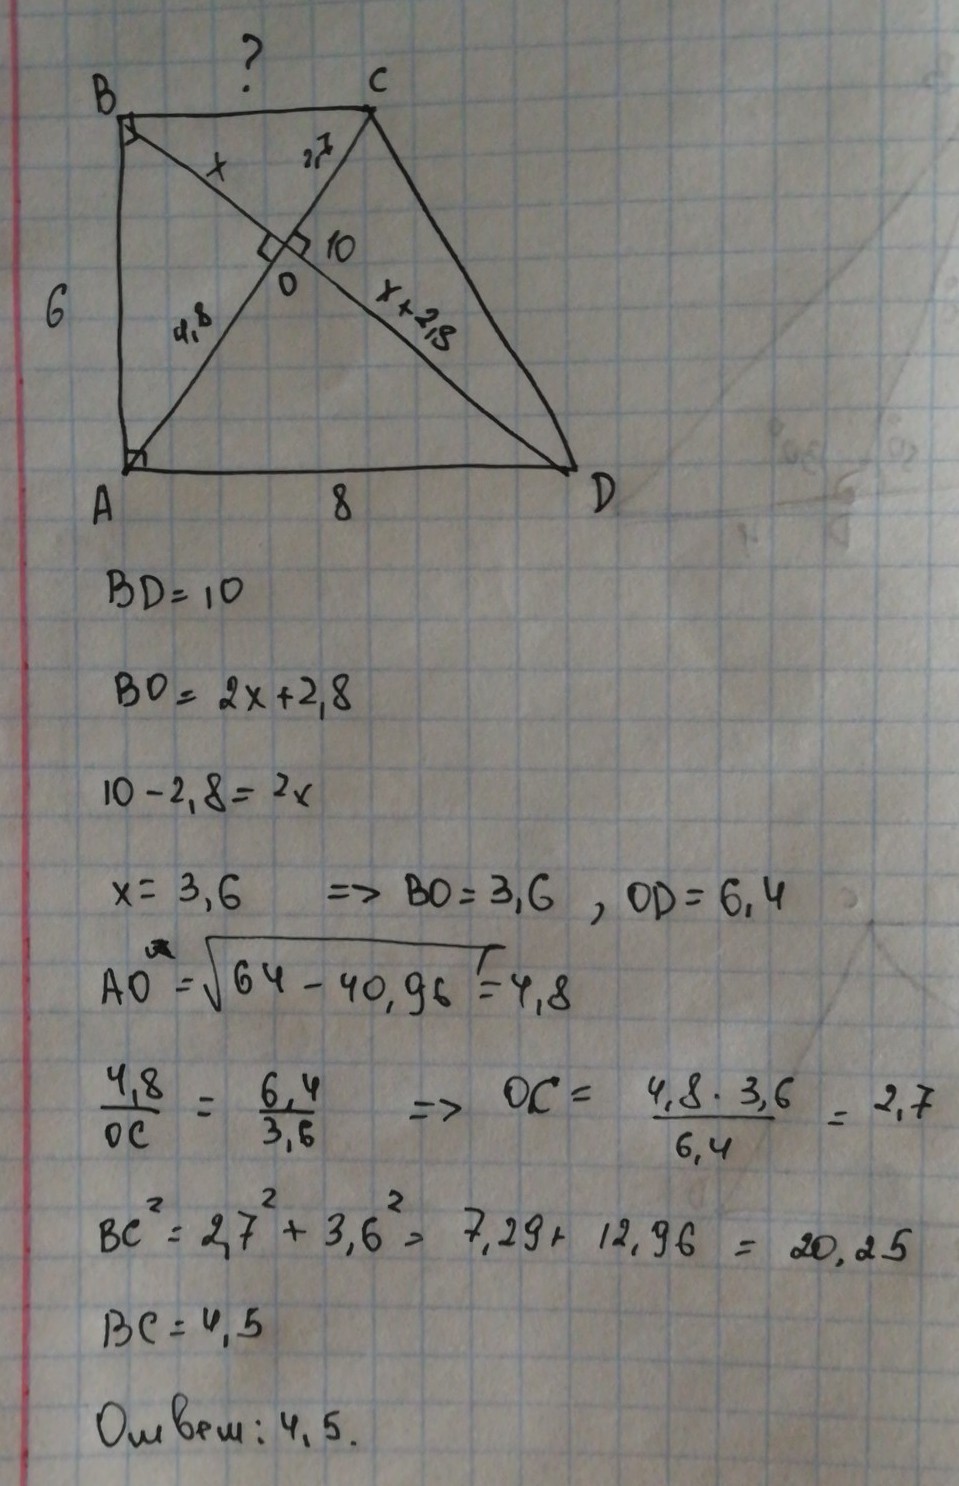 ?
B
C
x
2,7
10
O
6
4,8
x+2,8
A
8
D
BD=10
BD= 2x+2,8
10-2,8= 2x
x= 3,6 => BO=3,6 , OD=6,4
AO = √64-40,96 = 4,8
4,8/OC = 6,4/3,6 => OC= 4,8·3,6/6,4 = 2,7
BC²= 2,7²+3,6²= 7,29+ 12,96 = 20,25
BC= 4,5
Ответ: 4,5.